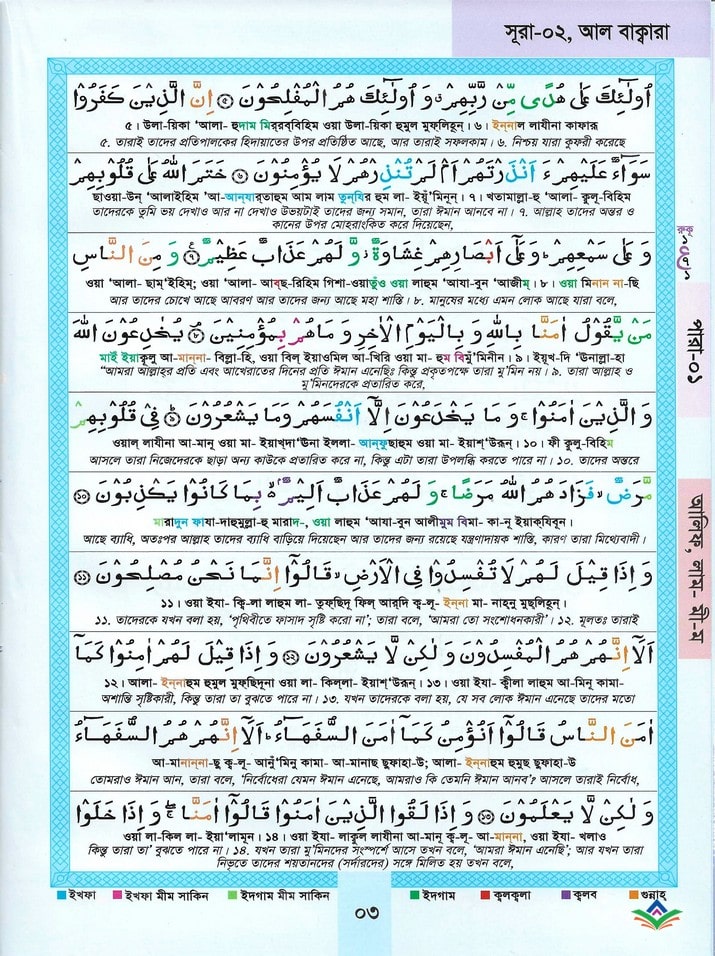 সূরা-০২, আল বাক্বারা
اُولٰٓئِكَ عَلٰى هُدًى مِّنْ رَّبِّهِمْ وَ اُولٰٓئِكَ هُمُ الْمُفْلِحُوْنَ ۝٥ اِنَّ الَّذِيْنَ كَفَرُوْا
৫। উলা-য়িকা ‘আলা- হুদাম মির্‌রব্বিহিম ওয়া উলা-য়িকা হুমুল মুফ্‌লিহূন্‌। ৬। ইন্‌নাল লাযীনা কাফারূ
৫. তারাই তাদের প্রতিপালকের হিদায়াতের উপর প্রতিষ্ঠিত আছে, আর তারাই সফলকাম। ৬. নিশ্চয় যারা কুফরী করেছে
سَوَآءٌ عَلَيْهِمْ ءَاَنْذَرْتَهُمْ اَمْ لَمْ تُنْذِرْهُمْ لَا يُؤْمِنُوْنَ ۝٦ خَتَمَ اللّٰهُ عَلٰى قُلُوْبِهِمْ
ছাওয়া-উন্‌ ‘আলাইহিম ‘আ-আন্‌যার্‌তাহুম আম লাম তুন্‌যির হুম লা- ইয়ু’মিনূন্‌। ৭। খতামাল্লা-হু ‘আলা- কুলূ-বিহিম
তাদেরকে তুমি ভয় দেখাও আর না দেখাও উভয়টাই তাদের জন্য সমান, তারা ঈমান আনবে না। ৭. আল্লাহ তাদের অন্তর ও
কানের উপর মোহরাংকিত করে দিয়েছেন,
وَ عَلٰى سَمْعِهِمْ ؕ وَ عَلٰٓى اَبْصَارِهِمْ غِشَاوَةٌ ز وَّ لَهُمْ عَذَابٌ عَظِيْمٌ ۝٧ وَ مِنَ النَّاسِ
ওয়া ‘আলা- ছাম্‌‘ইহিম্‌; ওয়া ‘আলা- আব্‌ছ-রিহিম গিশা-ওয়াতুঁও ওয়া লাহুম ‘আযা-বুন ‘আজীম্‌। ৮। ওয়া মিনান না-ছি
আর তাদের চোখে আছে আবরণ আর তাদের জন্য আছে মহা শাস্তি। ৮. মানুষের মধ্যে এমন লোক আছে যারা বলে,
مَنْ يَّقُوْلُ اٰمَنَّا بِاللّٰهِ وَ بِالْيَوْمِ الْاٰخِرِ وَ مَا هُمْ بِمُؤْمِنِيْنَ ۝٨ يُخٰدِعُوْنَ اللّٰهَ
মাই ইয়াকূলু আ-মান্‌না- বিল্লা-হি, ওয়া বিল্‌ ইয়াওমিল আ-খিরি ওয়া মা- হুম বিমু’মিনীন। ৯। ইয়ূখ-দি ‘ঊনাল্লা-হা
“আমরা আল্লাহ্‌র প্রতি এবং আখেরাতের দিনের প্রতি ঈমান এনেছি; কিন্তু প্রকৃতপক্ষে তারা মু’মিন নয়। ৯. তারা আল্লাহ ও
মু’মিনদেরকে প্রতারিত করে,
وَ الَّذِيْنَ اٰمَنُوْا ۚ وَ مَا يَخْدَعُوْنَ اِلَّاۤ اَنْفُسَهُمْ وَمَا يَشْعُرُوْنَ ۝٩ فِىْ قُلُوْبِهِمْ
ওয়াল্‌ লাযীনা আ-মানূ ওয়া মা- ইয়াখ্‌দা‘ঊনা ইল্‌লা- আন্‌ফুছাহুম ওয়া মা- ইয়াশ্‌‘উরূন্‌। ১০। ফী কুলূ-বিহিম
আসলে তারা নিজেদেরকে ছাড়া অন্য কাউকে প্রতারিত করে না, কিন্তু এটা তারা উপলব্ধি করতে পারে না। ১০. তাদের অন্তরে
مَّرَضٌ ۙ فَزَادَهُمُ اللّٰهُ مَرَضًا ۚ وَ لَهُمْ عَذَابٌ اَلِيْمٌۢ ۙ بِمَا كَانُوْا يَكْذِبُوْنَ ۝١٠
মারাদুন ফাযা-দাহুমুল্লা-হু মারাদ-, ওয়া লাহুম ‘আযা-বুন আলীমুম বিমা- কা-নূ ইয়াকযিবূন।
আছে ব্যাধি, অতঃপর আল্লাহ তাদের ব্যাধি বাড়িয়ে দিয়েছেন আর তাদের জন্য রয়েছে যন্ত্রণাদায়ক শাস্তি, কারণ তারা মিথ্যেবাদী।
وَ اِذَا قِيْلَ لَهُمْ لَا تُفْسِدُوْا فِى الْاَرْضِ ۙ قَالُوْٓا اِنَّمَا نَحْنُ مُصْلِحُوْنَ ۝١١
১১। ওয়া ইযা- ক্বি-লা লাহুম লা- তুফ্‌ছিদূ ফিল্‌ আর্‌দি কূ-লূ- ইন্‌না মা- নাহ্‌নু মুছলিহূন্‌।
১১. তাদেরকে যখন বলা হয়, ‘পৃথিবীতে ফাসাদ সৃষ্টি করো না’; তারা বলে, ‘আমরা তো সংশোধনকারী’। ১২. মূলতঃ তারাই
اَلَاۤ اِنَّهُمْ هُمُ الْمُفْسِدُوْنَ وَ لٰكِنْ لَّا يَشْعُرُوْنَ ۝١٢ وَ اِذَا قِيْلَ لَهُمْ اٰمِنُوْا كَمَاۤ
১২। আলা- ইন্‌নাহুম হুমুল মুফ্‌ছিদূনা ওয়া লা- কিল্‌লা- ইয়াশ্‌‘উরূন্‌। ১৩। ওয়া ইযা- ক্বীলা লাহুম আ-মিনূ কামা-
অশান্তি সৃষ্টিকারী, কিন্তু তারা তা বুঝতে পারে না। ১৩. যখন তাদেরকে বলা হয়, যে সব লোক ঈমান এনেছে তাদের মতো
اٰمَنَ النَّاسُ قَالُوْٓا اَنُؤْمِنُ كَمَاۤ اٰمَنَ السُّفَهَآءُ ؕ اَلَاۤ اِنَّهُمْ هُمُ السُّفَهَآءُ
আ-মানান্‌না-ছু কূ-লূ- আনু’মিনু কামা- আ-মানাছ ছুফাহা-উ; আলা- ইন্‌নাহুম হুমুছ ছুফাহা-উ
তোমরাও ঈমান আন, তারা বলে, ‘নির্বোধেরা যেমন ঈমান এনেছে, আমরাও কি তেমনি ঈমান আনব’? আসলে তারাই নির্বোধ,
وَ لٰكِنْ لَّا يَعْلَمُوْنَ ۝١٣ وَ اِذَا لَقُوا الَّذِيْنَ اٰمَنُوْا قَالُوْٓا اٰمَنَّا ۖۚ وَ اِذَا خَلَوْا
ওয়া লা-কিল লা- ইয়া‘লামূন। ১৪। ওয়া ইযা- লাকুল লাযীনা আ-মানূ কূ-লূ- আ-মান্‌না, ওয়া ইযা- খলাও
কিন্তু তারা তা’ বুঝতে পারে না। ১৪. যখন তারা মু’মিনদের সংস্পর্শে আসে তখন বলে, ‘আমরা ঈমান এনেছি’; আর যখন তারা
নিভৃতে তাদের শয়তানদের (সর্দারদের) সঙ্গে মিলিত হয় তখন বলে,
রুকু
পারা-০১
আলিফ, লাম- মী-ম
ইখফা ইখফা মীম সাকিন ইদগাম মীম সাকিন ইদগাম ক্বলক্বলা ক্বলব গুন্নাহ্
০৩